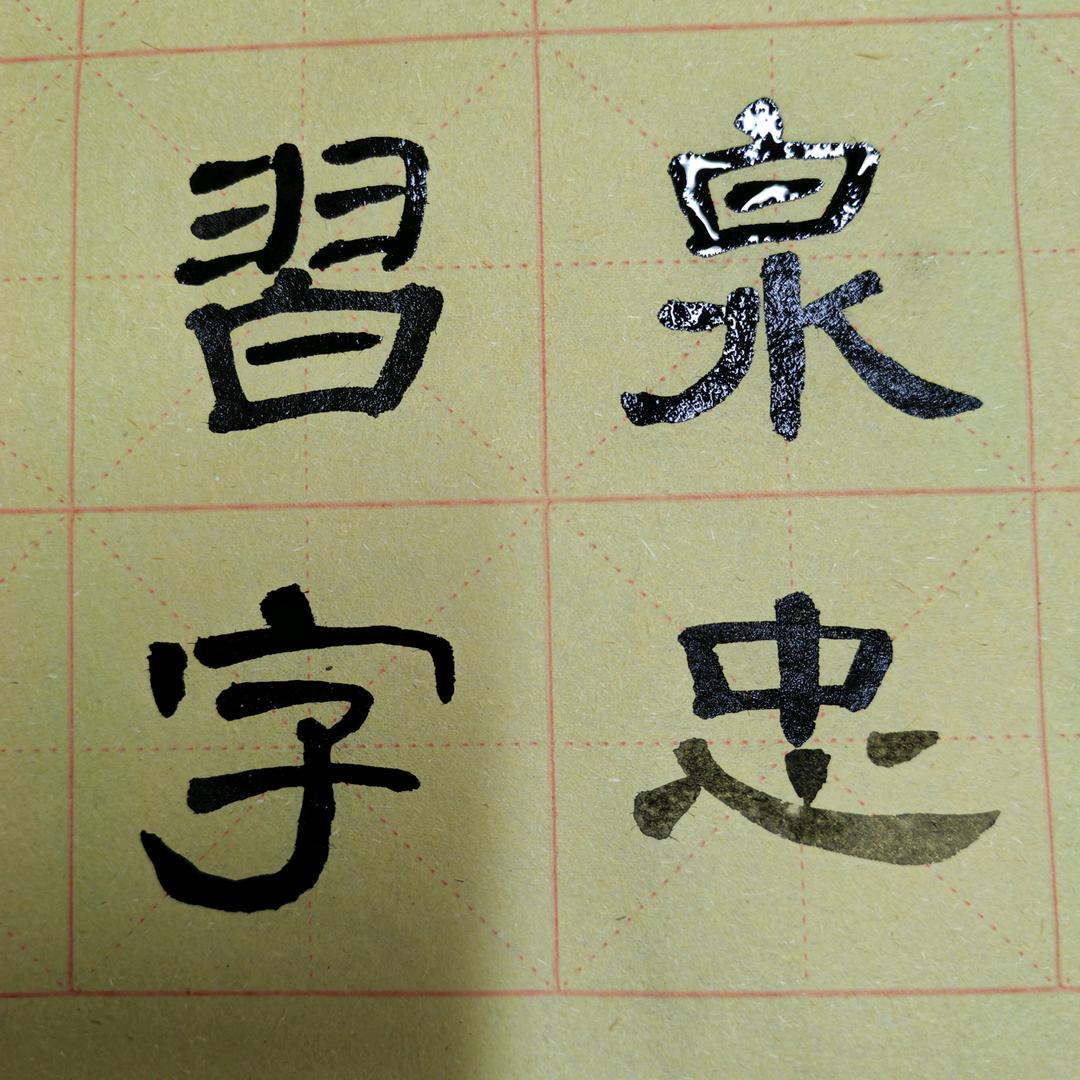 泉忠
習字